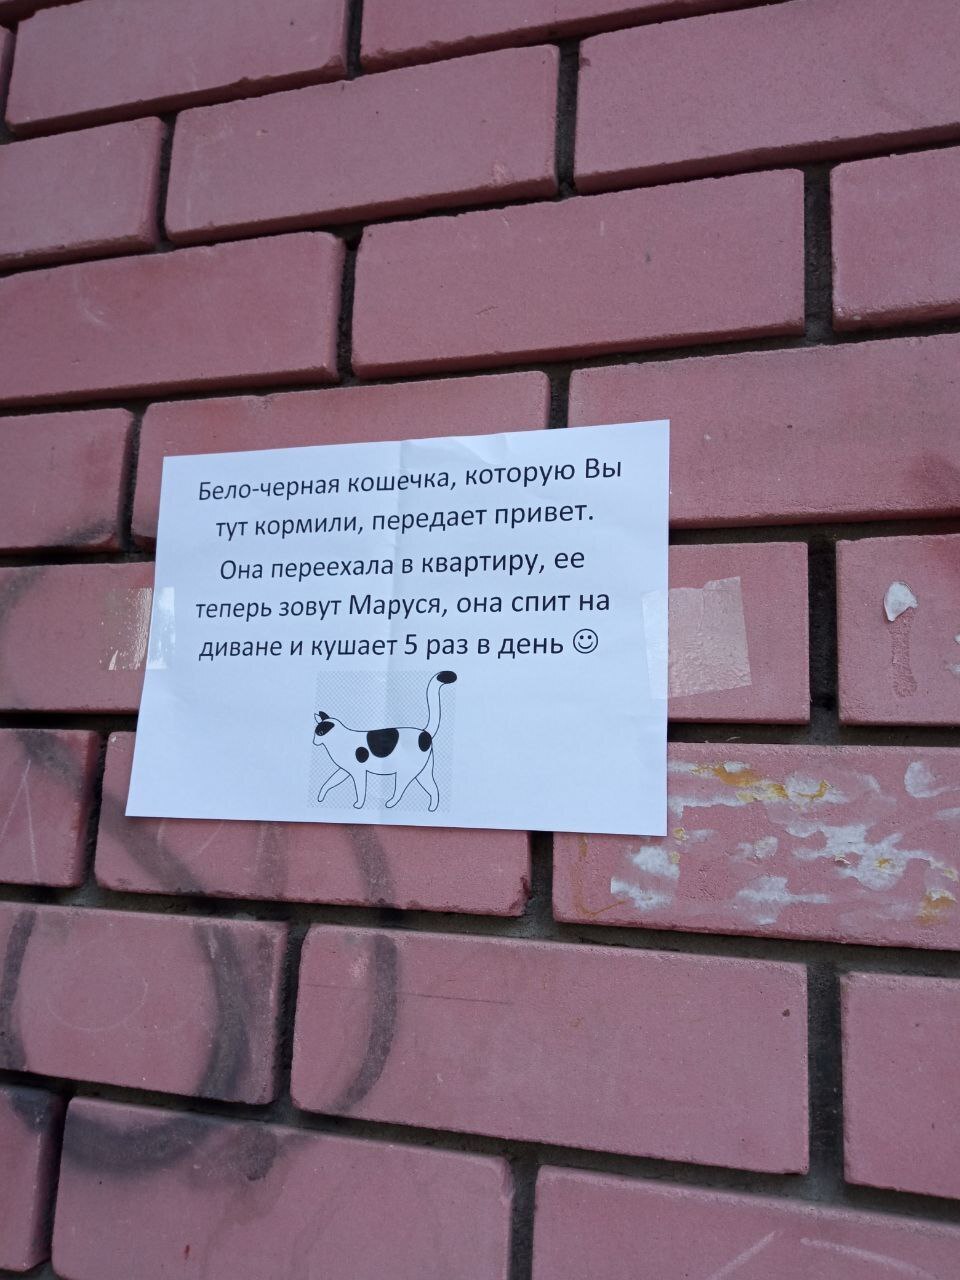 Бело-черная кошечка, которую Вы
тут кормили, передает привет.
Она переехала в квартиру, ее
теперь зовут Маруся, она спит на
диване и кушает 5 раз в день ☺